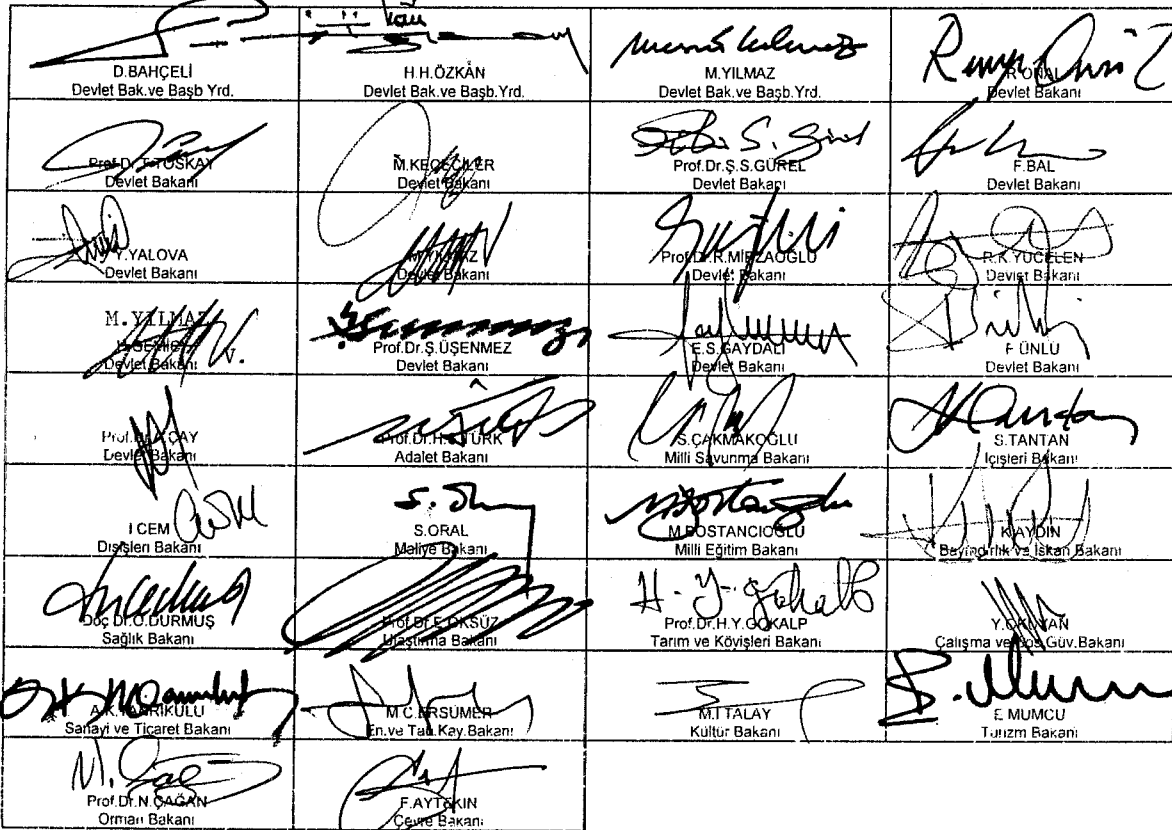 D.BAHÇELİ
Devlet Bak.ve Başb Yrd.
H.H.ÖZKAN
Devlet Bak.ve Başb.Yrd.
M.YILMAZ
Devlet Bak.ve Başb.Yrd.
R.ÖNAL
Devlet Bakanı
Prof.Dr.T.TOSKAY
Devlet Bakanı
M.KEÇECİLER
Devlet Bakanı
Prof.Dr.Ş.S.GÜREL
Devlet Bakanı
F.BAL
Devlet Bakanı
Y.YALOVA
Devlet Bakanı
M.YILMAZ
Devlet Bakanı
Prof.Dr.R.MİRZAOĞLU
Devlet Bakanı
R.K.YÜCELEN
Devlet Bakanı
M.YILMAZ
V.
Devlet Bakanı
Prof.Dr.Ş.ÜŞENMEZ
Devlet Bakanı
E.S.GAYDALI
Devlet Bakanı
F.ÜNLÜ
Devlet Bakanı
Prof.Dr.A.ÇAY
Devlet Bakanı
Prof.Dr.H.S.TÜRK
Adalet Bakanı
S.ÇAKMAKOĞLU
Milli Savunma Bakanı
S.TANTAN
İçişleri Bakanı
İ.CEM
Dışişleri Bakanı
S.ORAL
Maliye Bakanı
M.BOSTANCIOĞLU
Milli Eğitim Bakanı
K.AYDIN
Bayındırlık ve İskan Bakanı
Doç.Dr.O.DURMUŞ
Sağlık Bakanı
Prof.Dr.E.ÖKSÜZ
Ulaştırma Bakanı
H.Y.Gökalp
Prof.Dr.H.Y.GÖKALP
Tarım ve Köyişleri Bakanı
Y.OKUYAN
Çalışma ve Sos.Güv.Bakanı
A.K.TANRIKULU
Sanayi ve Ticaret Bakanı
M.C.ERSÜMER
En.ve Tab.Kay.Bakanı
M.İ.TALAY
Kültür Bakanı
E.MUMCU
Turizm Bakanı
Prof.Dr.N.ÇAĞAN
Orman Bakanı
F.AYTEKİN
Çevre Bakanı